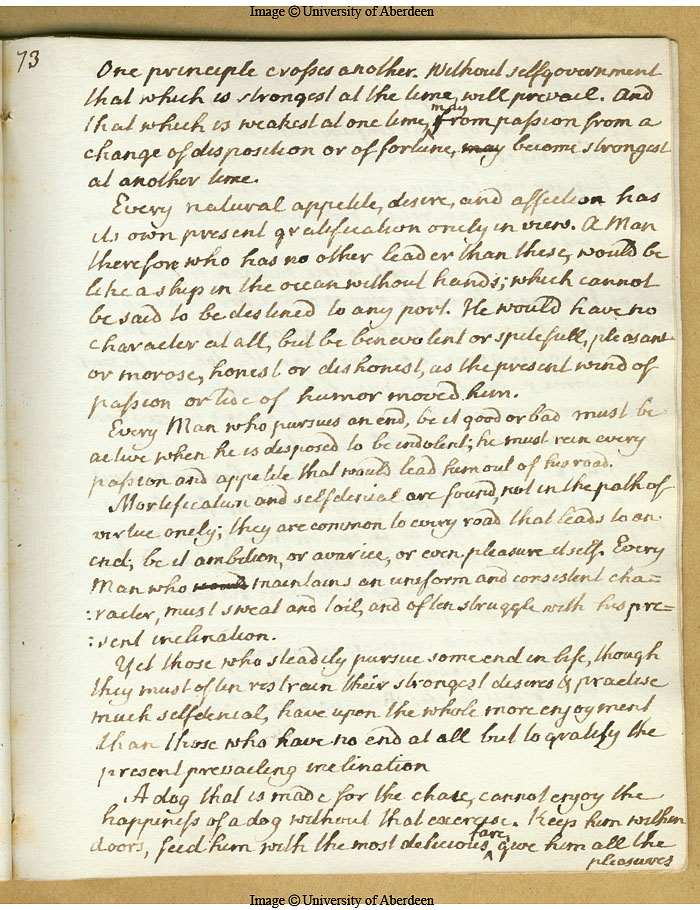 Image © University of Aberdeen
73
One principle crosses another. Without selfgovernment
that which is strongest at the time, will prevail. And
that which is weakest at one time, may from passion from a
change of disposition or of fortune, may become strongest
at another time.
Every natural appetite, desire, and affection has
its own present gratification onely in view. A Man
therefore who has no other leader than these, would be
like a ship in the ocean without hands; which cannot
be said to be destined to any port. He would have no
character at all, but be benevolent or spitefull, pleasant
or morose, honest or dishonest, as the present wind of
passion or tide of humor moved him.
Every Man who pursues an end, be it good or bad must be
active when he is disposed to be indolent; he must rein every
passion and appetite that would lead him out of his road.
Mortification and selfdenial are found, not in the path of
virtue onely; they are common to every road that leads to an
end, be it ambition, or avarice, or even pleasure itself. Every
Man who would maintains an uniform and consistent cha=
:racter, must sweat and toil, and often struggle with his pre=
:sent inclination.
Yet those who steadily pursue some end in life, though
they must often restrain their strongest desires & practise
much selfdenial, have upon the whole more enjoyment
than those who have no end at all but to gratify the
present prevailing inclination
A dog that is made for the chase, cannot enjoy the
happiness of a dog without that exercise. Keep him within
doors, feed him with the most delicious fare, give him all the
pleasures
Image © University of Aberdeen